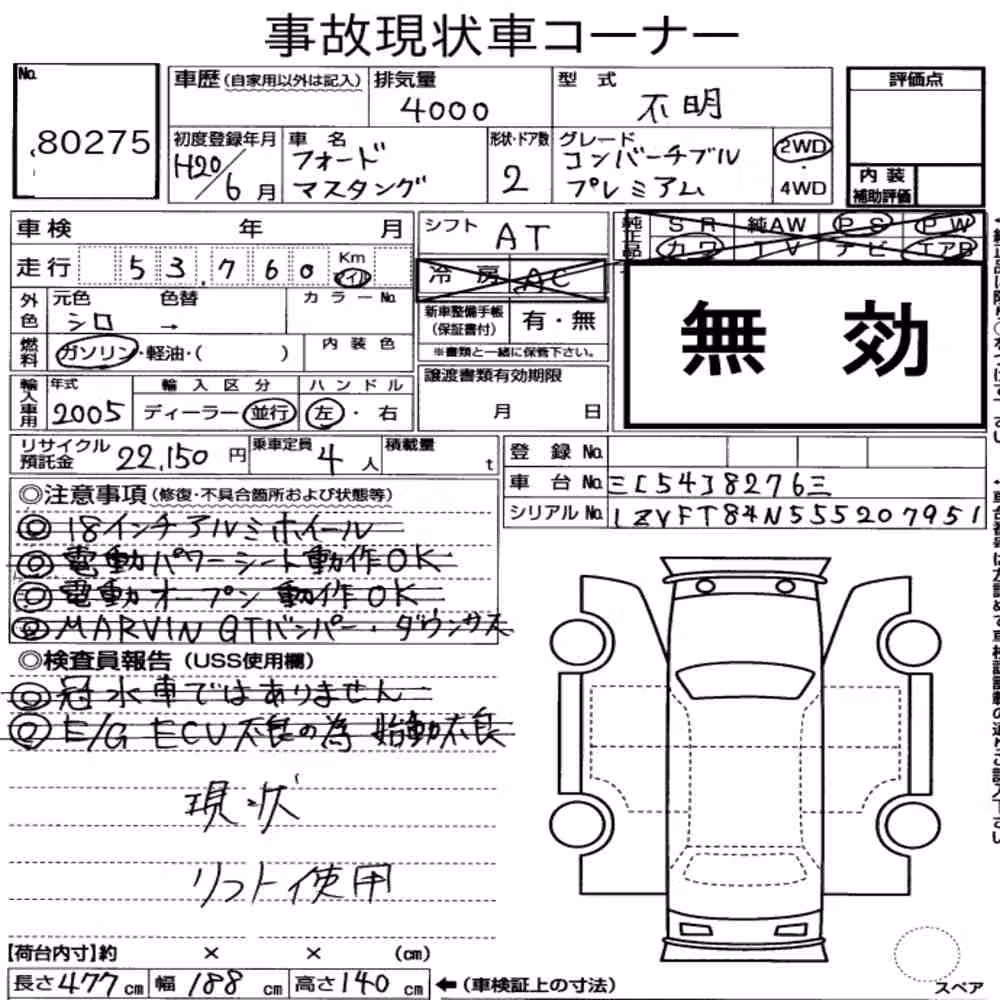 事故現状車コーナー
No. 80275
車歴(自家用以外は記入) 排気量 4000 型式 不明
評価点
初度登録年月 H20/6月 車名 フォード マスタング 形状・ドア数 2 グレード コンバーチブル プレミアム 2WD・4WD
内装補助評価
車検 年 月 シフト AT
純正品 SR 純AW PS PW
カワ TV ナビ エアB
走行 53,760 Km マイル
冷房 AC
外色 元色 シロ 色替 → カラーNo.
新車整備手帳(保証書付) 有・無
※書類と一緒に保管下さい。
無効
燃料 ガソリン・軽油・( ) 内装色
輸入車用 年式 2005 輸入区分 ディーラー・並行 ハンドル 左・右
譲渡書類有効期限 月 日
リサイクル預託金 22,150円 乗車定員 4人 積載量 t
登録No.
車台No. 三[54]8276三
シリアルNo. 1ZVFT84N555207951
◎注意事項(修復・不具合箇所および状態等)
◎18インチアルミホイール
◎電動パワーシート動作OK
◎電動オープン動作OK
◎MARVIN GTバンパー・ダウンサス
◎検査員報告(USS使用欄)
◎冠水車ではありません
◎E/G ECU不良の為 始動不良
現状
リフト使用
【荷台内寸】約 × × (cm)
長さ477cm 幅188cm 高さ140cm ←(車検証上の寸法)
スペア